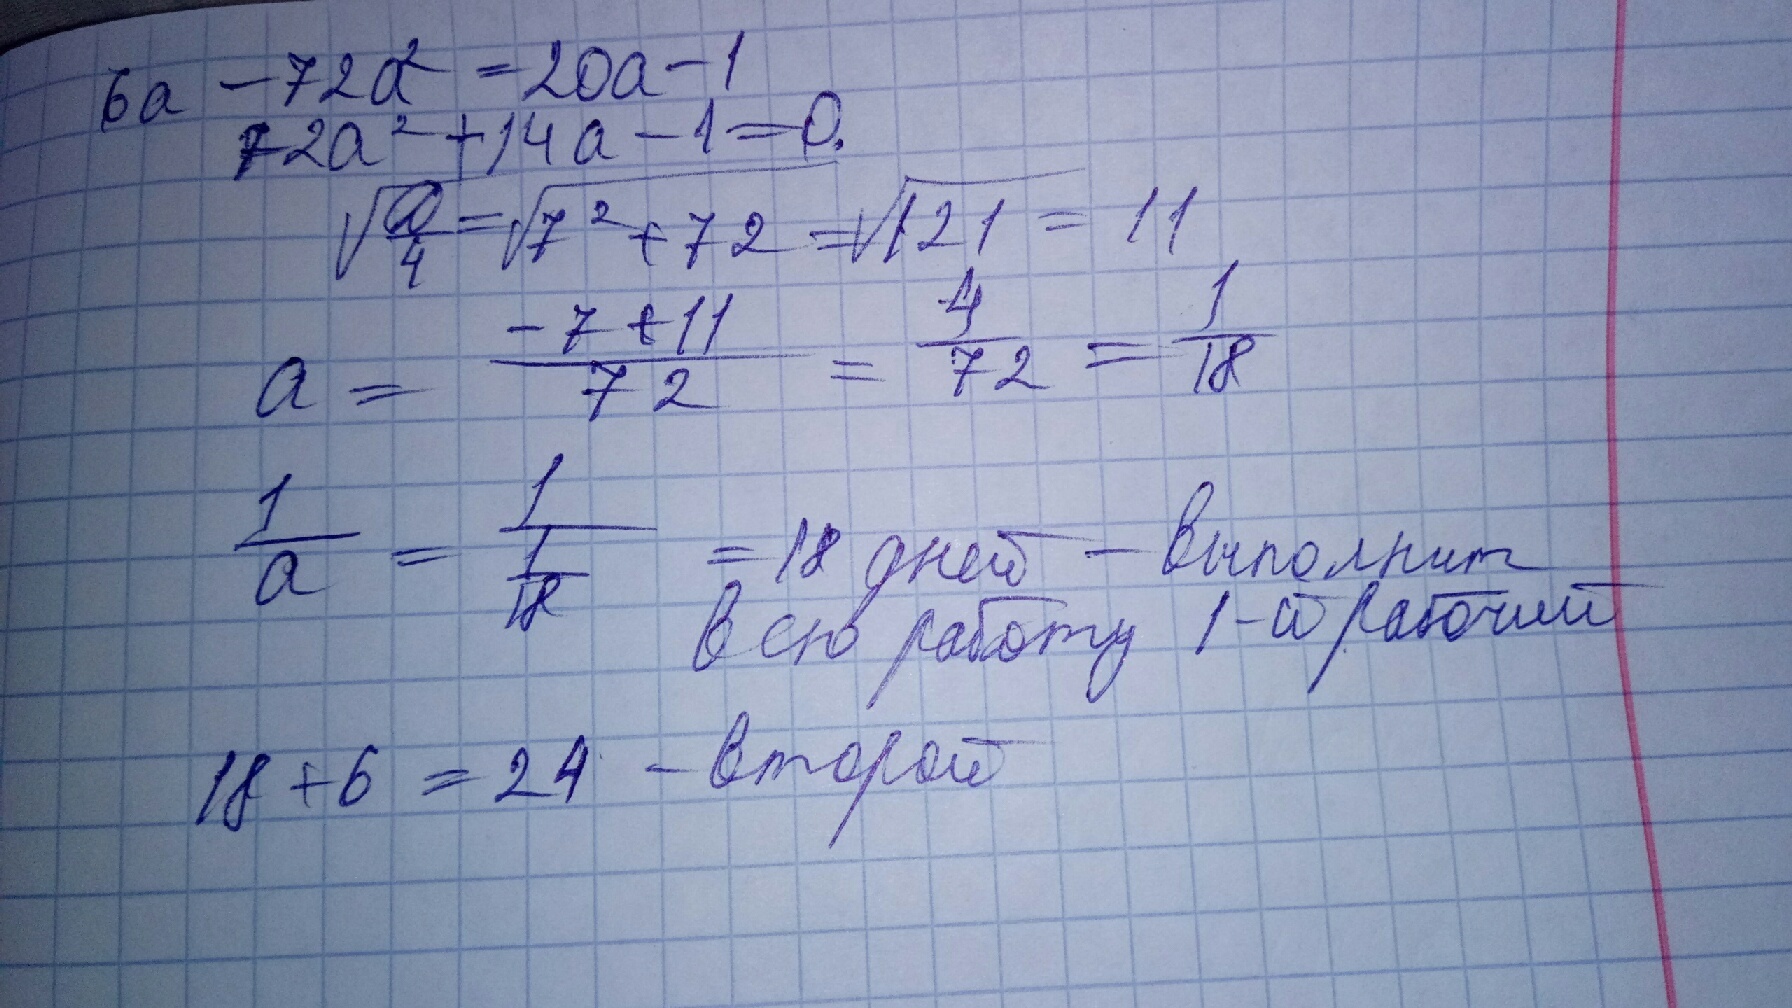 6a - 72a² = 20a - 1
72a² + 14a - 1 = 0.
√(D/4) = √(7² + 72) = √121 = 11
a = (-7 + 11)/72 = 4/72 = 1/18
1/a = 1/(1/18) = 18 дней - выполнит
всю работу 1-й рабочий
18 + 6 = 24 - второй